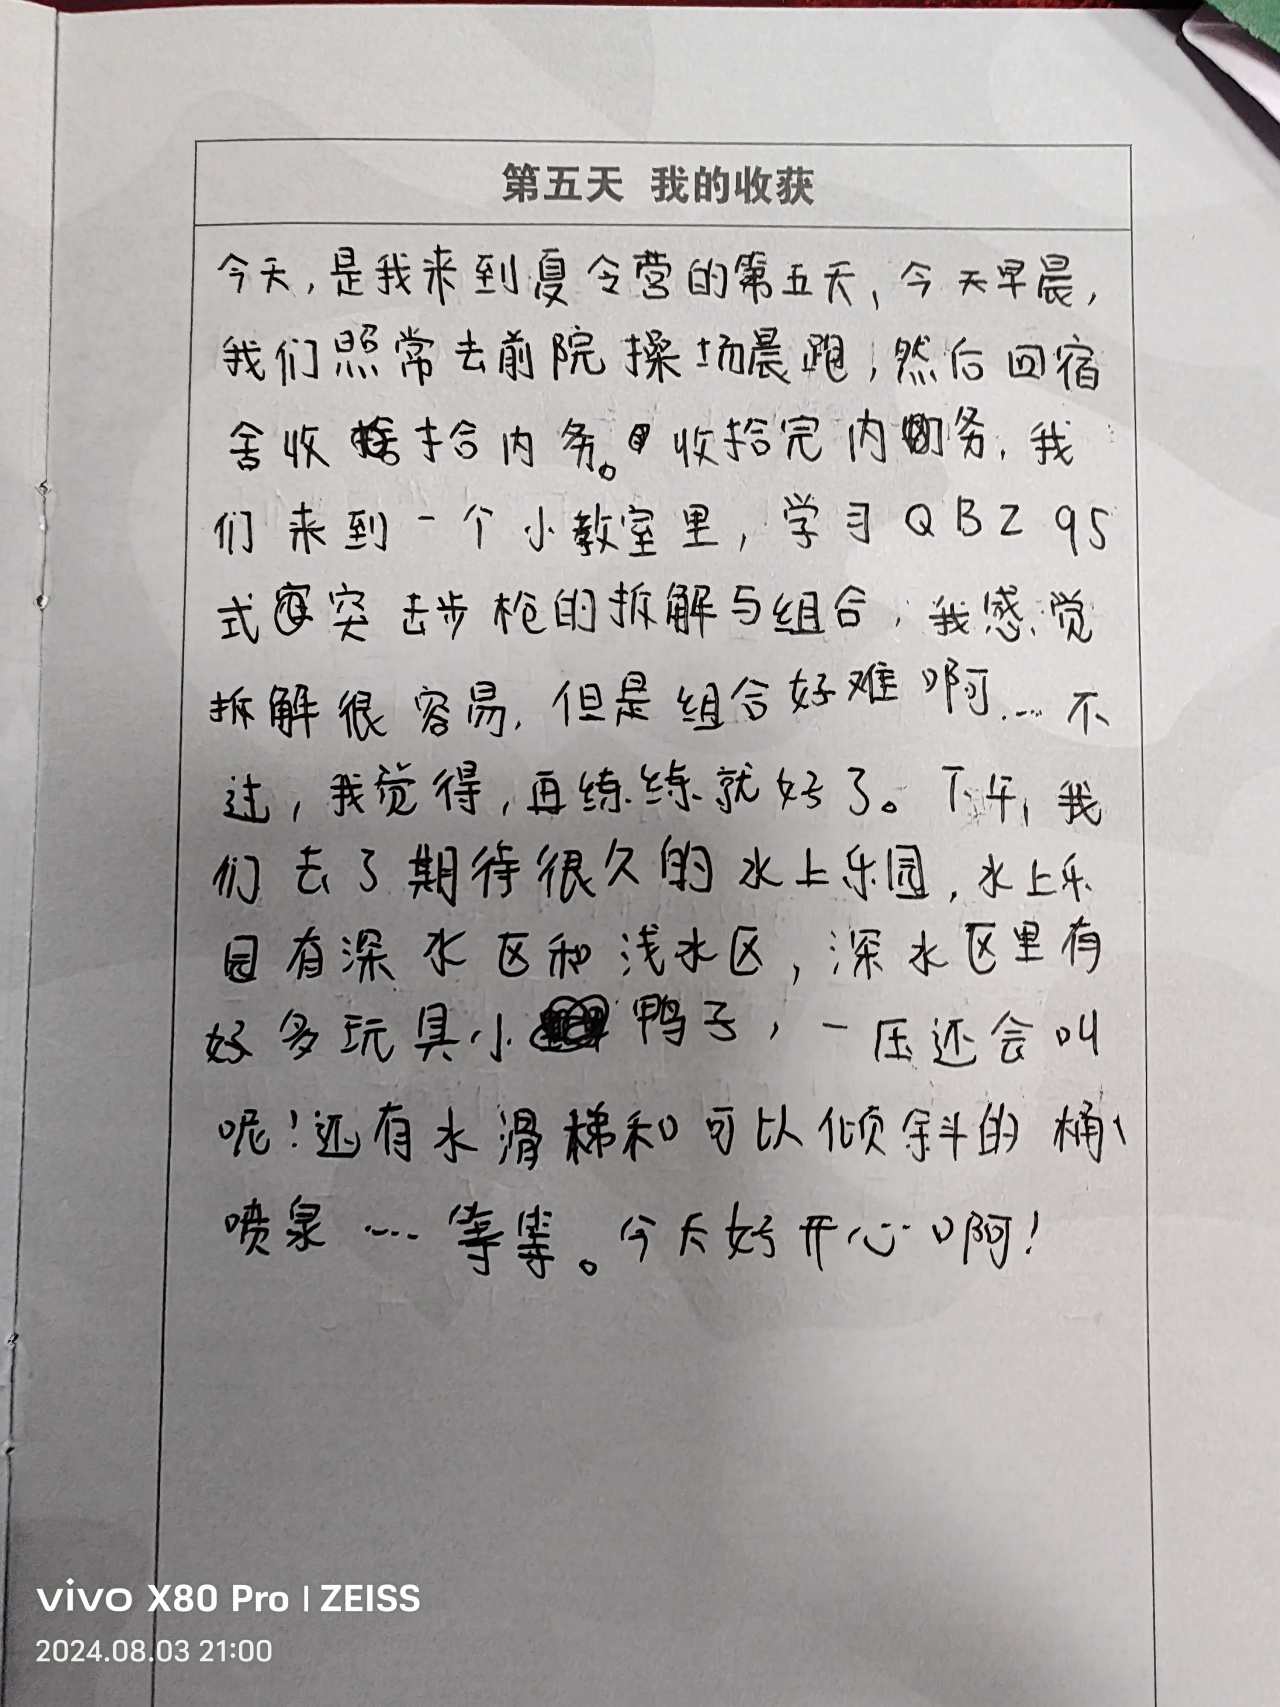 第五天 我的收获
今天，是我来到夏令营的第五天，今天早晨，
我们照常去前院操场晨跑，然后回宿
舍收拾内务。收拾完内务，我
们来到一个小教室里，学习QBZ95
式突击步枪的拆解与组合，我感觉
拆解很容易，但是组合好难啊…不
过，我觉得，再练练就好了。下午，我
们去了期待很久的水上乐园，水上乐
园有深水区和浅水区，深水区里有
好多玩具小鸭子，一压还会叫
呢！还有水滑梯和可以倾斜的桶、
喷泉…等等。今天好开心啊！
vivo X80 Pro | ZEISS
2024.08.03 21:00